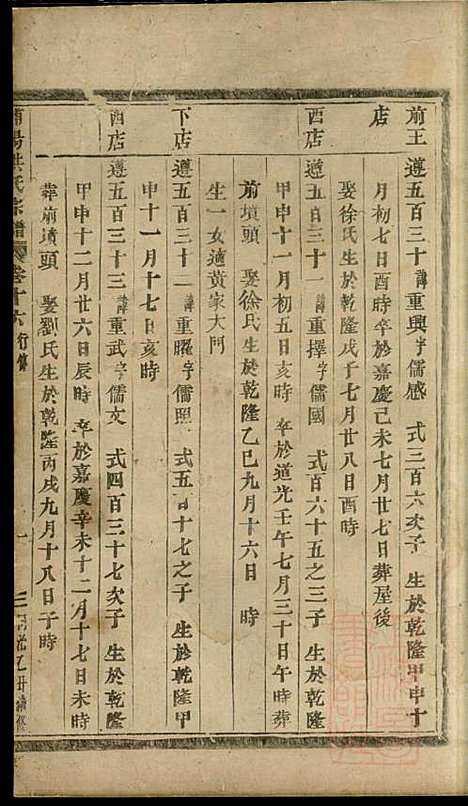 前王 遵五百三十 諱重興字儒感 式三百六次子 生於乾隆甲申十
店 月初七日酉時卒於嘉慶己未七月廿七日葬屋後
娶徐氏生於乾隆戊子七月廿八日酉時
西店 遵五百三十一 諱重擇字儒國 式百六十五之三子 生於乾隆
甲申十一月初五日亥時 卒於道光壬午七月三十日午時葬
前墳頭 娶徐氏生於乾隆乙巳九月十六日 時
生一女適黃家大門
下店 遵五百三十二 諱重曜字儒照 式五百十七之子 生於乾隆甲
申十一月十七日亥時
西店 遵五百三十三 諱重武字儒文 式四百三十七次子 生於乾隆
甲申十二月廿六日辰時 卒於嘉慶辛未十二月十七日未時
葬前墳頭 娶劉氏生於乾隆丙戌九月十八日子時
陽洪氏宗譜 卷十六 行傳 一 光乙丑